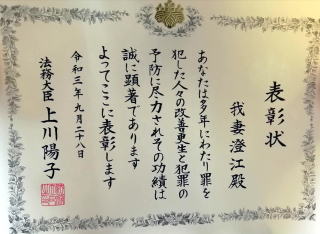 表彰状
我妻澄江殿
あなたは多年にわたり罪を
犯した人々の改善更生と犯罪の
予防に尽力されその功績は
誠に顕著であります
よってここに表彰します
令和三年九月二十八日
法務大臣 上川陽子